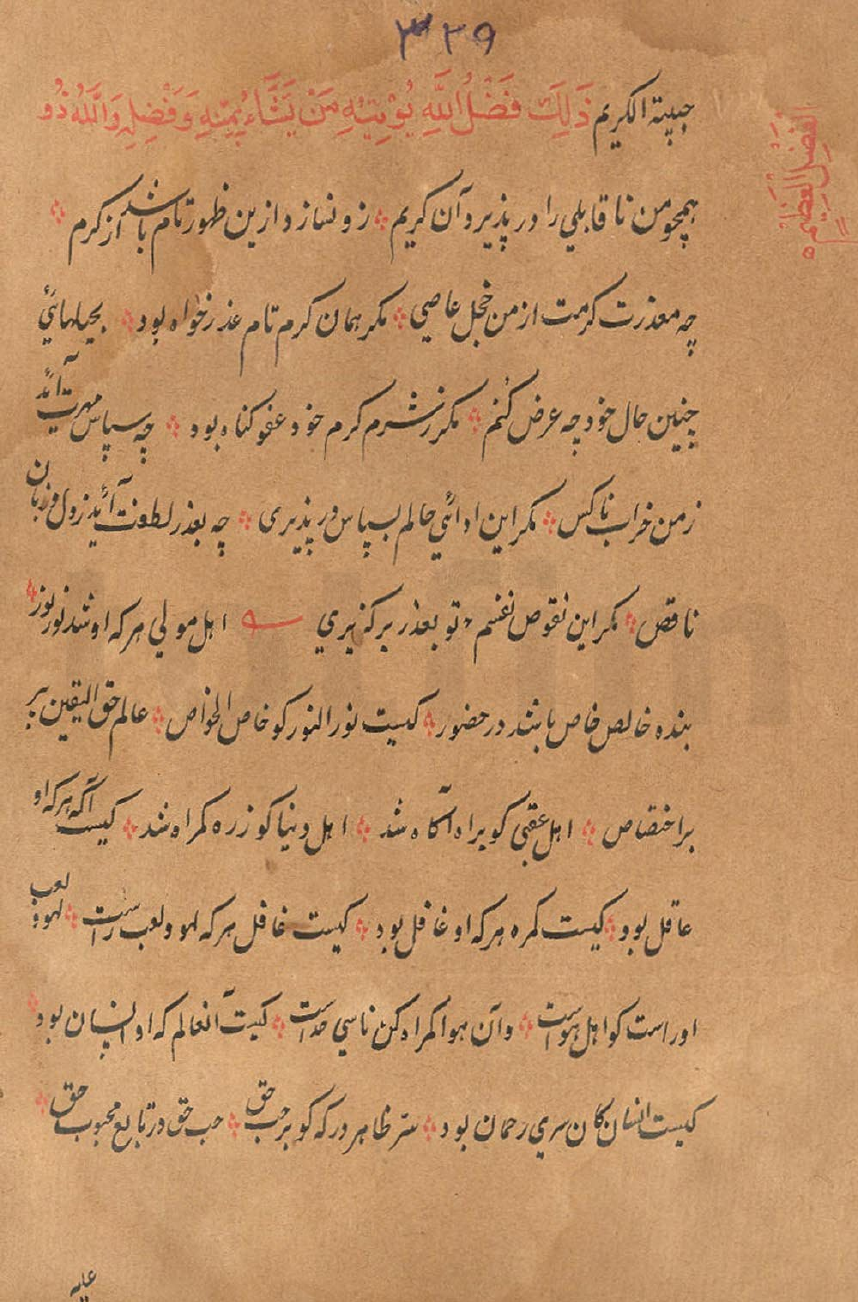 ۳۲۹
حبیبه الکریم ذَلِكَ فَضْلُ اللَّهِ يُؤْتِيهِ مَنْ يَشَاءُ بِمَنِّهِ وَفَضْلِهِ وَاللَّهُ ذُو
الْفَضْلِ الْعَظِيمِ
همچو من نا قابلی را در پذیرد آن کریم زو نسازد ازین ظهور تام باشد از کرم
چه معذرت کرمت از من خجل عاصی مکر همان کرم تام عذر خواه بود بحیلهائی
چنین حال خود چه عرض کنم مکر ز شرم کرم خود عفو کناه بود چه سپاس مهرت آئد
زمن خراب ناکس مکر این ادائی حالم بسپاس در پذیری چه بعذر لطفت آئد ز دل و زبان
ناقص مکر این نقوص نفسم تو بعذر بر کزیری اهل مولی هر که او شد نور نور
بنده خالص خاص باشد در حضور کیست نور النور کو خاص الخواص عالم حق الیقین بر
بر اختصاص اهل عقبی کو براه آکاه شد اهل دنیا کو ز ره کمراه شد کیست آکه هر که او
عاقل بود کیست کمره هر که او غافل بود کیست غافل هر که لهو و لعب راست لهو و لعب
اوراست کو اهل هواست وآن هوا کمراه کن ناسی خداست کیست آنعالم که او انسان بود
کیست انسان کان سری رحمان بود سرّ ظاهر در که کو بر حب حق حب حق در تابع محبوب حق
علیه